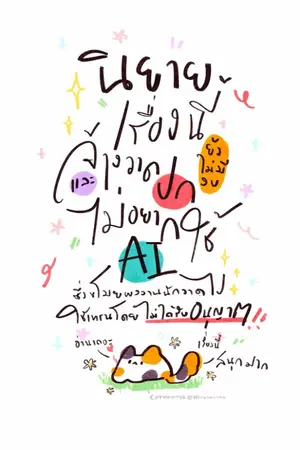 นิยาย
เรื่องนี้
จ้างวาดปก
ยังไม่มีงบ
และ
ไม่อยากใช้
AI
ซึ่งขโมยผลงานนักวาดไป
ใช้เทรนโดยไม่ได้รับอนุญาต!!
อ่านเถอะ
เรื่องนี้
สนุกมาก